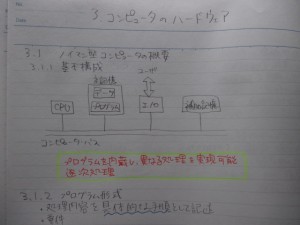 3. コンピュータのハードウェア
3.1 ノイマン型コンピュータの概要
3.1.1 基本構成
ユーザ
主記憶
データ
プログラム
CPU
I/O
補助記憶
コンピュータバス
プログラムを内蔵し、異なる処理を実現可能
逐次処理
3.1.2 プログラム形式
・処理内容を具体的な手順として記述